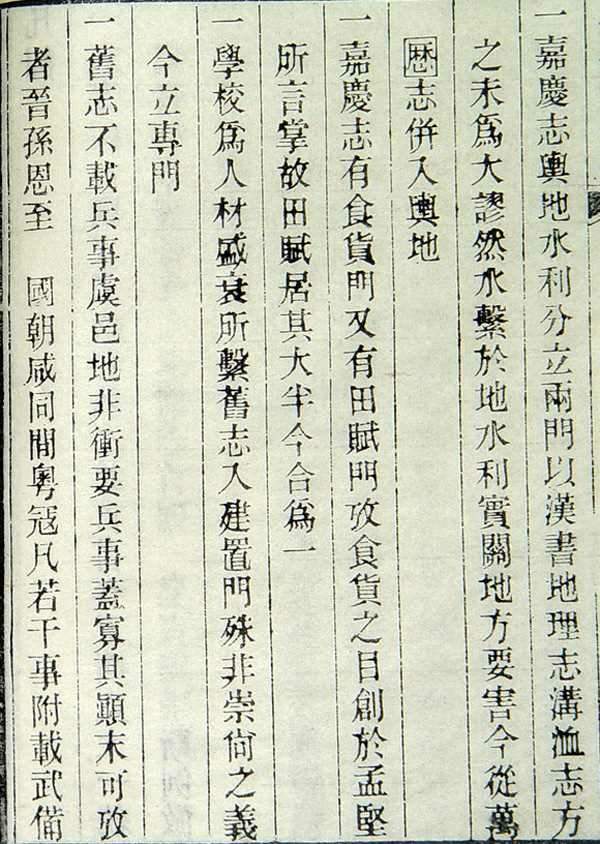 一嘉慶志輿地水利分立兩門以漢書地理志溝洫志方
之未爲大謬然水繫於地水利實關地方要害今從萬
厯志併入輿地
一嘉慶志有食貨門又有田賦門攷食貨之目創於孟堅
所言掌故田賦居其大半今合爲一
一學校爲人材盛衰所繫舊志入建置門殊非崇尙之義
今立專門
一舊志不載兵事虞邑地非衝要兵事蓋寡其顚末可攷
者晉孫恩至 國朝咸同間粵寇凡若干事附載武備